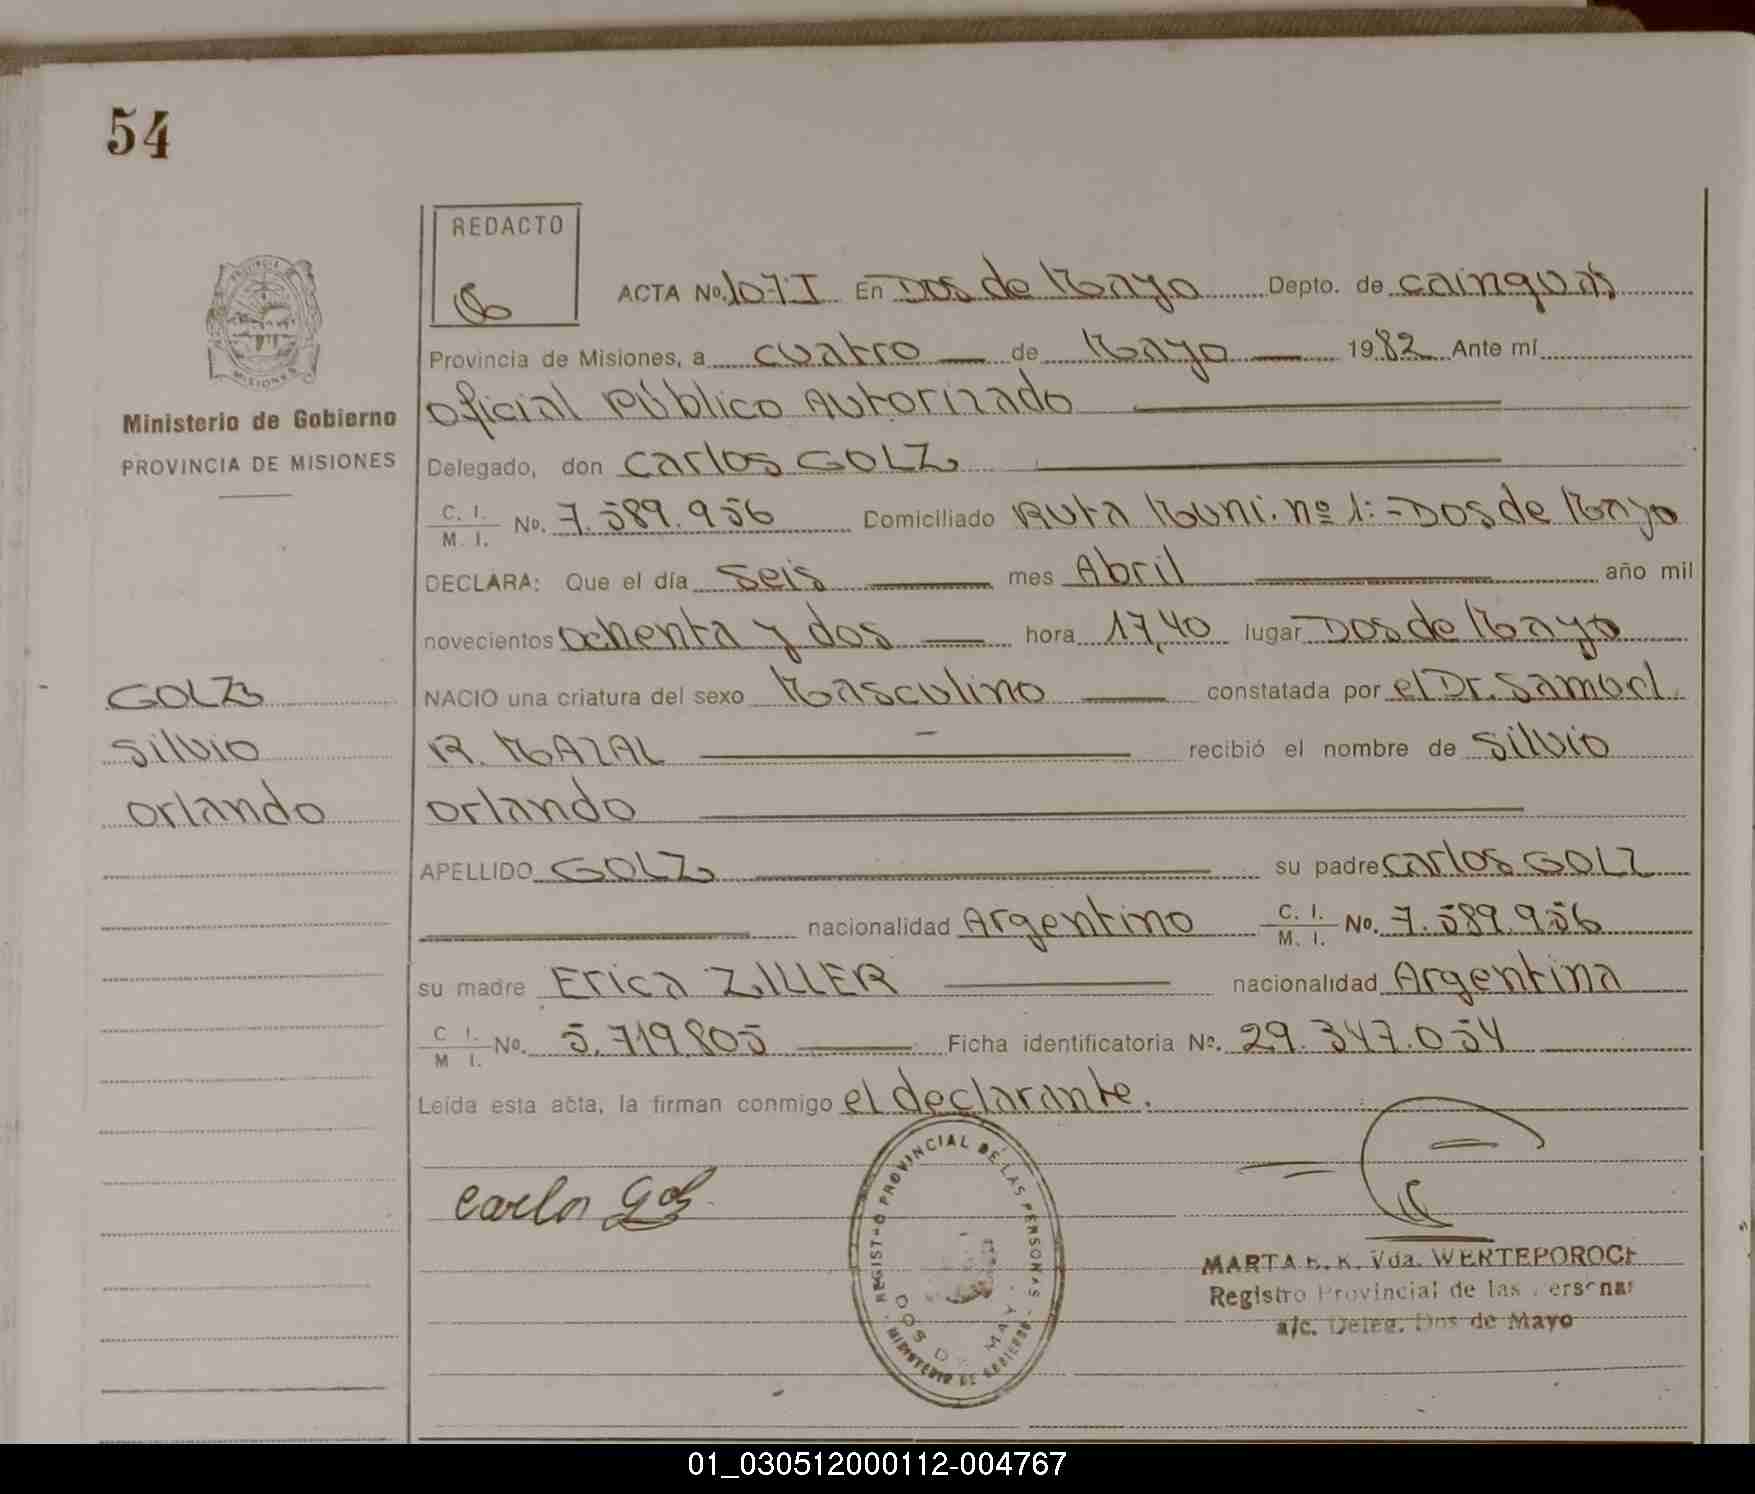 54
REDACTO
ACTA No. 107 I En Dos de Mayo Depto. de cainguás
Provincia de Misiones, a cuatro de Mayo 1982 Ante mí
Oficial Público Autorizado
Ministerio de Gobierno
PROVINCIA DE MISIONES
Delegado, don Carlos GOLZ
C. I. / M. I. No. 7.589.956 Domiciliado Ruta Muni. nº 1:=Dos de Mayo
DECLARA: Que el día seis mes Abril año mil
novecientos ochenta y dos hora 17,40 lugar Dos de Mayo
NACIO una criatura del sexo Masculino constatada por el Dr. Samuel
R. MAZAL recibió el nombre de Silvio
Orlando
GOLZ
Silvio
Orlando
APELLIDO GOLZ su padre Carlos GOLZ
nacionalidad Argentino C. I. / M. I. No. 7.589.956
su madre Erica ZILLER nacionalidad Argentina
C I. / M I. No. 5.719.805 Ficha identificatoria No. 29.347.054
Leída esta acta, la firman conmigo el declarante.
Carlos Golz
REGISTRO PROVINCIAL DE LAS PERSONAS
DOS DE MAYO
MINISTERIO DE GOBIERNO
MARTA Vda. WERTEPOROCH
Registro Provincial de las Personas
a/c. Deleg. Dos de Mayo
PROVINCIA DE
MISIONES
01_030512000112-004767